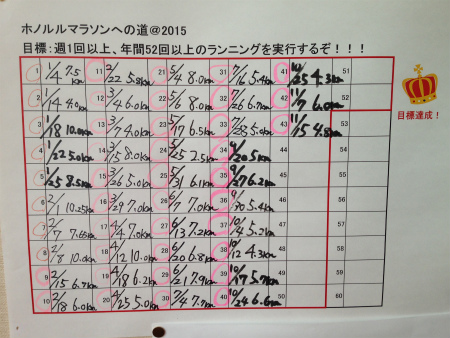 ホノルルマラソンへの道@2015
目標：週1回以上、年間52回以上のランニングを実行するぞ！！！
1 1/4 7.5km
2 1/14 4.0km
3 1/18 10.0km
4 1/22 5.0km
5 1/25 8.5km
6 2/1 10.25km
7 2/7
8 2/8 10.0km
9 2/15 6.7km
10 2/18 6.0km
11 2/22 5.8km
12 3/4 6.0km
13 3/7 4.0km
14 3/15 8.0km
15 3/26 5.0km
16 3/29 7.0km
17 4/4 7.0km
18 4/12 10.0km
19 4/18 6.2km
20 4/25 5.0km
21 5/4 8.0km
22 5/6 8.0km
23 5/17 6.5km
24 5/25 2.5km
25 5/31 6.1km
26 6/7 7.0km
27 6/13 7.2km
28 6/20 6.8km
29 6/21 7.9km
30 7/4 7.7km
31 7/16 5.4km
32 7/26 6.7km
33 7/28 5.0km
34 20.5km
35 9/27 6.2km
36 9/30 5.4km
37 10/4 5.2km
38 10/12 4.3km
39 10/17 5.7km
40 10/24 6.6km
41 10/25 4.3km
42 11/7 6.0km
43 11/15 4.8km
44
45
46
47
48
49
50
51
52
53
54
55
56
57
58
59
60
目標達成！